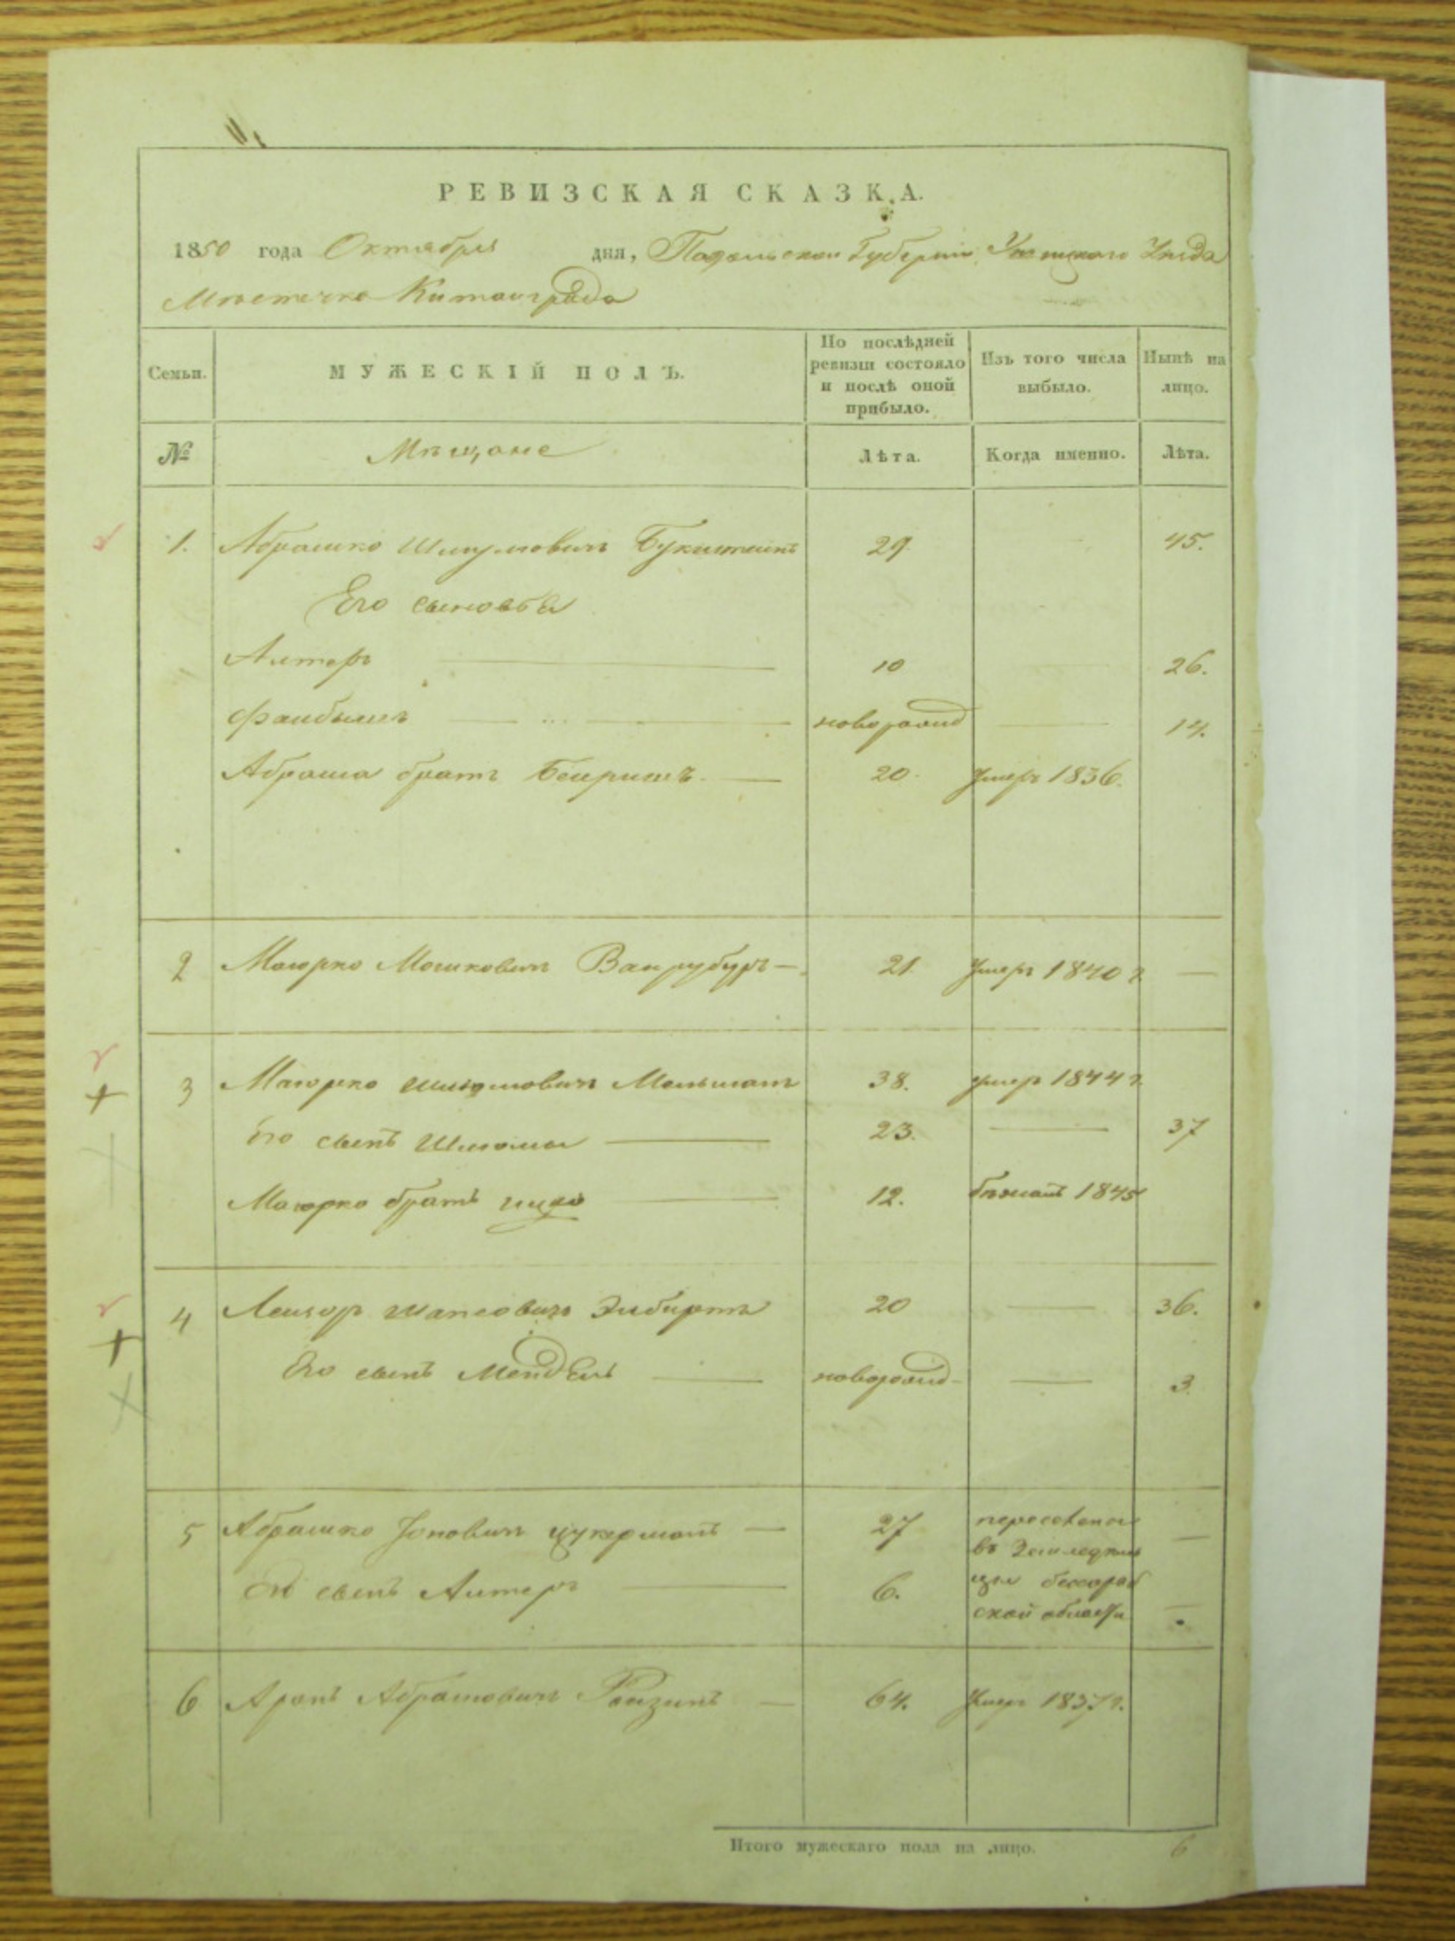 РЕВИЗСКАЯ СКАЗКА.
1850 года Октября дня, Подольской Губернии, Ушицкого Уезда
Местечка Китайграда
Семьи. МУЖЕСКІЙ ПОЛЪ. По послѣдней ревизіи состояло и послѣ оной прибыло. Изъ того числа выбыло. Нынѣ на лицо.
№ Мещане Лѣта. Когда именно. Лѣта.
1. Абрашко Шмулович 29 45.
Его сыновья
Алтеръ 10 26.
Файбышъ новорожд 14.
Абраша братъ Бейришъ 20 умеръ 1836.
2 Маіорко Мошковичъ 21 умеръ 1840 г.
3 Маіорко 38. умеръ 1844 г.
Его сынъ Шлиома 23. 37
Маіорко братъ 12. бежалъ 1845
4 Лейзоръ 20 36.
Его сынъ Мендель новорожд 3.
5 Абрашко Цукерманъ 27 переселены въ
Его сынъ Алтеръ 6. Бессараб ской области
6 Аронъ Абрамовичъ Ройзинъ 64. Умеръ 1837 г.
Итого мужескаго пола на лицо. 6